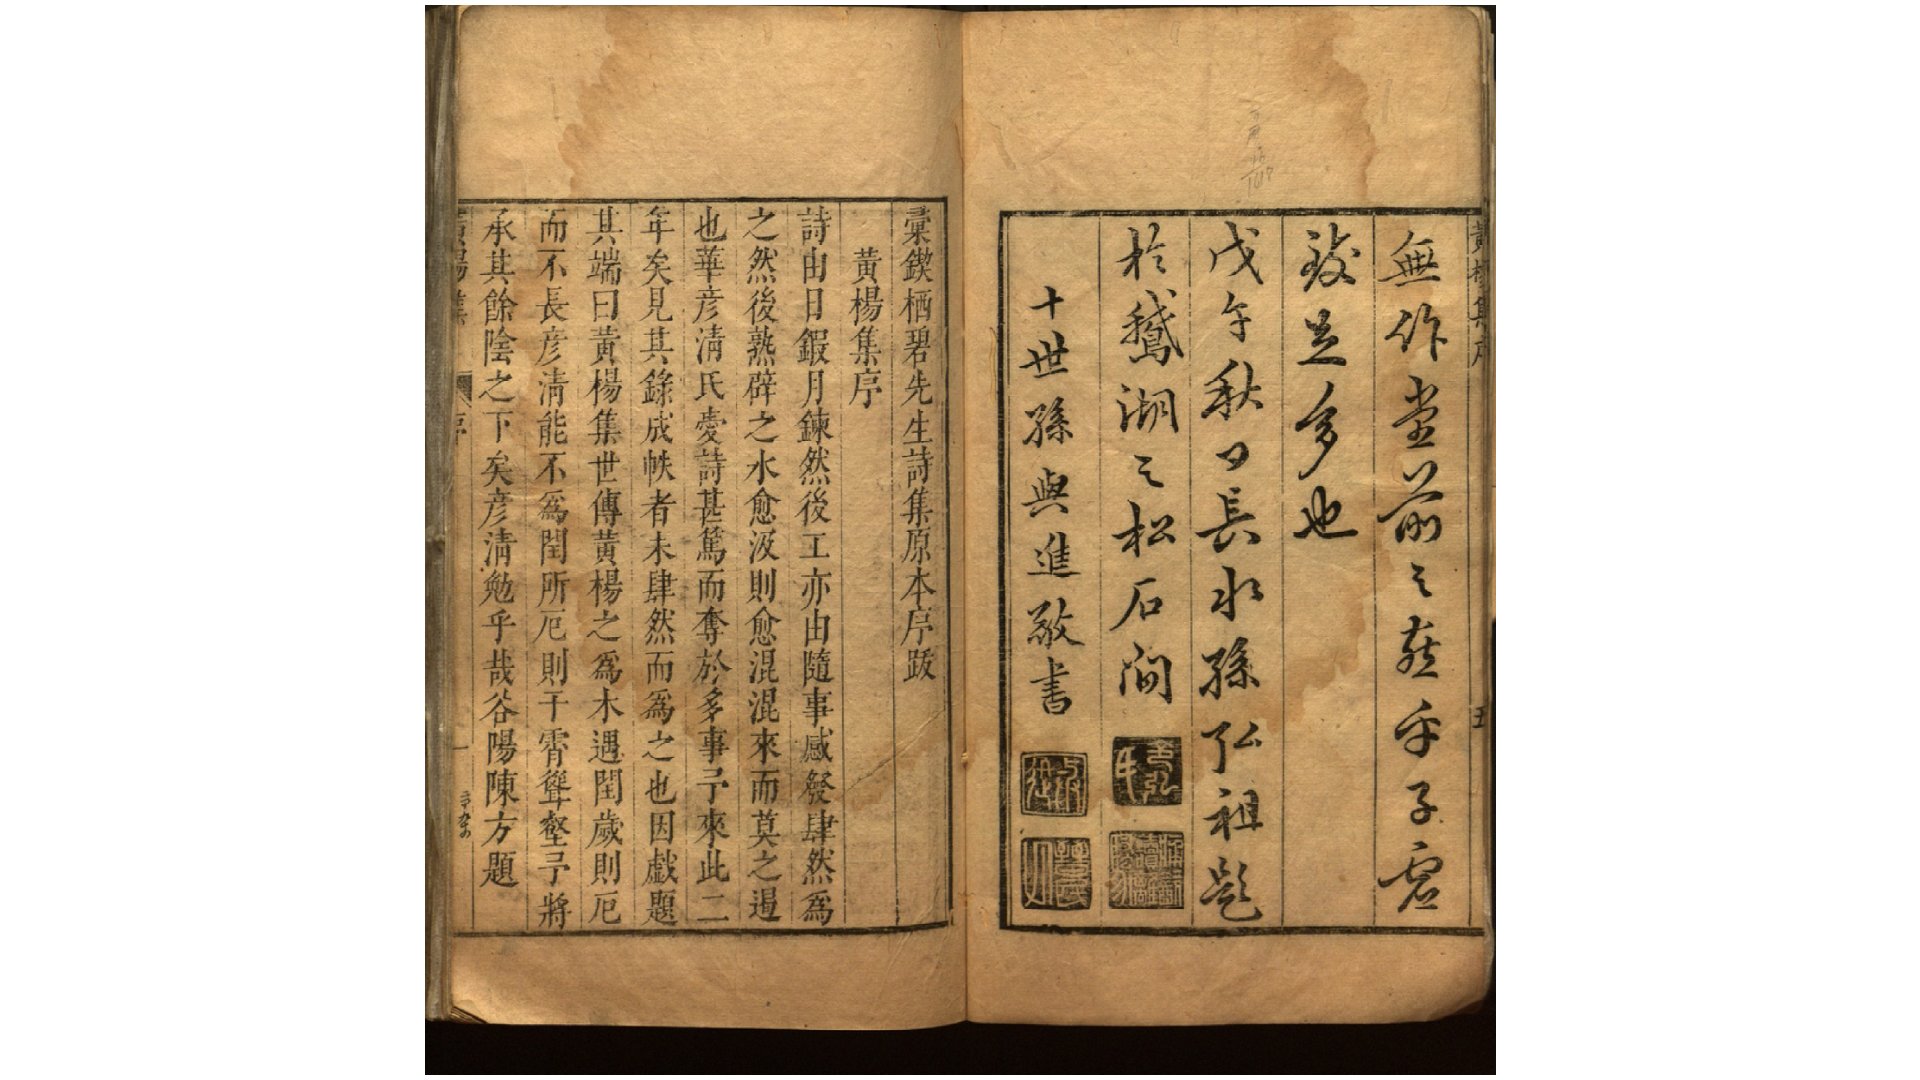 黃楊集序
五
無作堂前之燕乎子虛
致足多也
戊午秋日長水孫弘祖題
於鵝湖之松石澗
十世孫與進敬書
彙鍥栖碧先生詩集原本序跋
黃楊集序
詩由日鍜月鍊然後工亦由隨事感發肆然爲
之然後熟辟之水愈汲則愈混混來而莫之遏
也華彦淸氏愛詩甚篤而奪於多事予來此二
年矣見其錄成帙者未肆然而爲之也因戲題
其端曰黃楊集世傳黃楊之爲木遇閏歲則厄
而不長彦淸能不爲閏所厄則干霄聳壑予將
承其餘陰之下矣彦淸勉乎哉谷陽陳方題
黃楊集
序
一